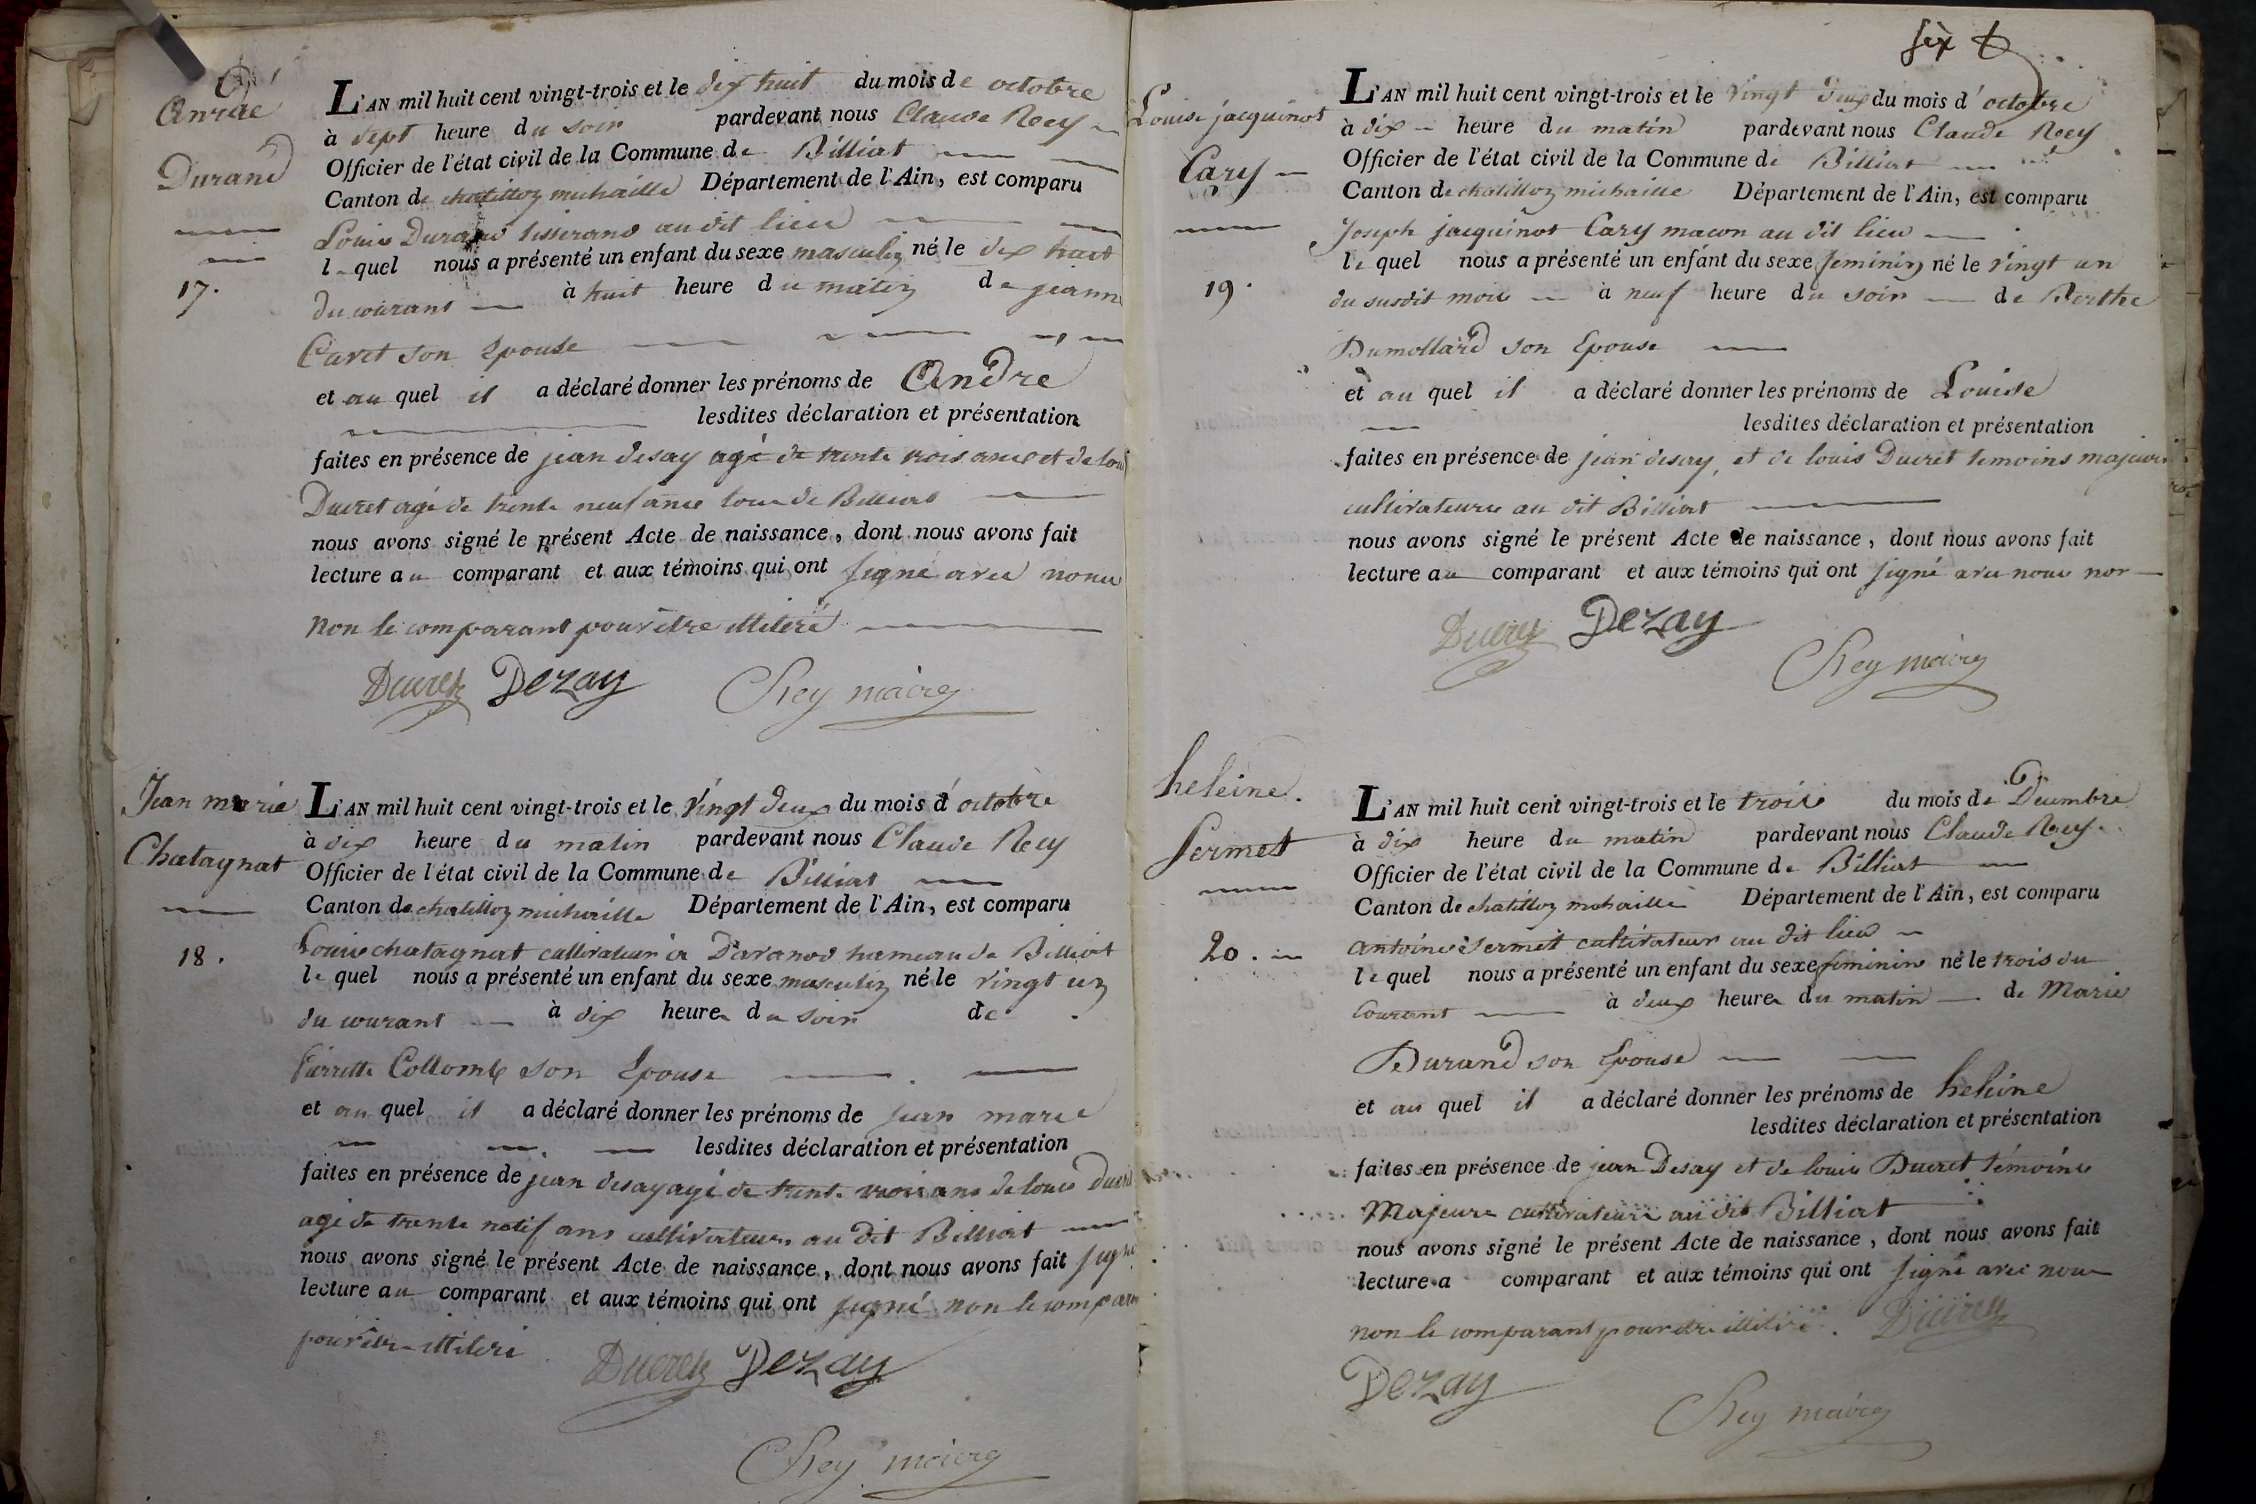 André
Durand
17.
L'AN mil huit cent vingt-trois et le dix huit du mois de octobre
à sept heure du soir pardevant nous Claude Rey
Officier de l'état civil de la Commune de Billiat
Canton de chatillon michaille Département de l'Ain, est comparu
Louis Durand tisserand au dit lieu
le quel nous a présenté un enfant du sexe masculin né le dix huit
du courant à huit heure du matin de jeanne
Caret son Epouse
et au quel il a déclaré donner les prénoms de André
lesdites déclaration et présentation
faites en présence de jean desay agé de trente trois ans et de louis
Ducret agé de trente neuf ans tous de Billiat
nous avons signé le présent Acte de naissance, dont nous avons fait
lecture au comparant et aux témoins qui ont signé avec nous
Non le comparant pour être illiteré
Ducret Dezay Rey maire
Jean marie
Chatagnat
18.
L'AN mil huit cent vingt-trois et le vingt deux du mois d'octobre
à dix heure du matin pardevant nous Claude Rey
Officier de l'état civil de la Commune de Billiat
Canton de chatillon michaille Département de l'Ain, est comparu
Louis chatagnat cultivateur à Davanod hameau de Billiat
le quel nous a présenté un enfant du sexe masculin né le vingt un
du courant à dix heure du soir de
Pierrette Collomb son Epouse
et au quel il a déclaré donner les prénoms de jean marie
lesdites déclaration et présentation
faites en présence de jean desay agé de trente trois ans de louis Ducret
agé de trente neuf ans cultivateurs au dit Billiat
nous avons signé le présent Acte de naissance, dont nous avons fait signé
lecture au comparant et aux témoins qui ont signé non le comparant
pour être illiteré
Ducret Dezay
Rey maire
six
Louise jacquinot
Cary
19.
L'AN mil huit cent vingt-trois et le vingt deux du mois d'octobre
à dix heure du matin pardevant nous Claude Rey
Officier de l'état civil de la Commune de Billiat
Canton de chatillon michaille Département de l'Ain, est comparu
Joseph jacquinot Cary macon au dit lieu
le quel nous a présenté un enfant du sexe feminin né le vingt un
du susdit mois à neuf heure du soir de Berthe
Dumollard son Epouse
et au quel il a déclaré donner les prénoms de Louise
lesdites déclaration et présentation
faites en présence de jean desay, et de louis Ducret temoins majeurs
cultivateurs au dit Billiat
nous avons signé le présent Acte de naissance, dont nous avons fait
lecture au comparant et aux témoins qui ont signé avec nous
Ducret Dezay
Rey maire
heleine
Sermet
20.
L'AN mil huit cent vingt-trois et le trois du mois de Decembre
à dix heure du matin pardevant nous Claude Rey
Officier de l'état civil de la Commune de Billiat
Canton de chatillon michaille Département de l'Ain, est comparu
antoine Sermet cultivateur au dit lieu
le quel nous a présenté un enfant du sexe feminin né le trois du
Courant à deux heure du matin de Marie
Durand son Epouse
et au quel il a déclaré donner les prénoms de heleine
lesdites déclaration et présentation
faites en présence de jean Desay et de louis Ducret témoins
Majeurs cultivateurs au dit Billiat
nous avons signé le présent Acte de naissance, dont nous avons fait
lecture a comparant et aux témoins qui ont signé avec nous
non le comparant pour etre illiteré. Ducret
Dezay
Rey maire